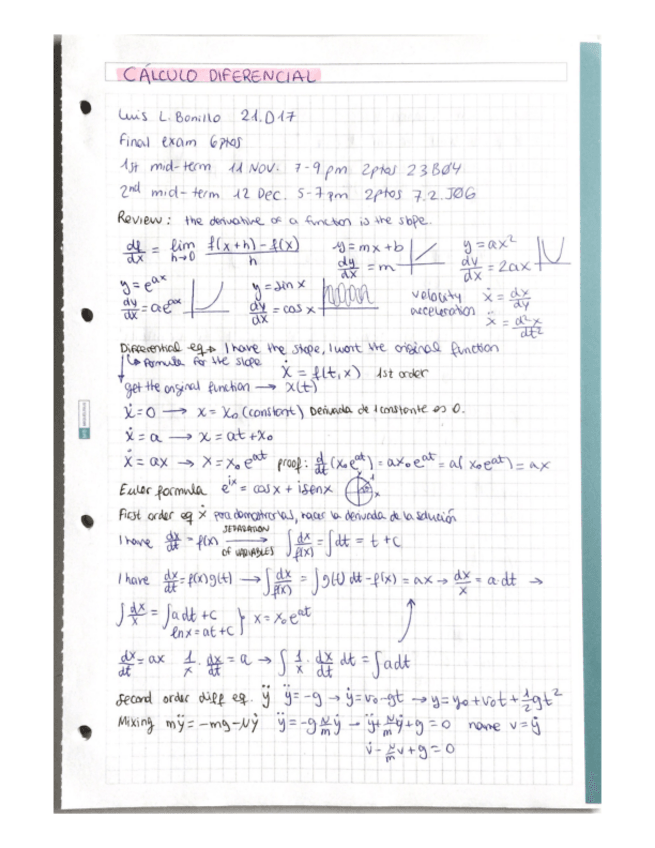 CÁLCULO DIFERENCIAL
Luis L. Bonillo 21.D17
Final exam 6ptos
1st mid-term 11 NOV. 7-9 pm 2ptos 23B04
2nd mid-term 12 Dec. 5-7 pm 2ptos 7.2.J06
Review: the derivative of a function is the slope.
df/dx = lim h→0 f(x+h)-f(x)/h y=mx+b dy/dx = m y=ax² dy/dx = 2ax
y=e^ax dy/dx = ae^ax y=sin x dy/dx = cos x velocity ẋ = dx/dy
acceleration ẍ = d²x/dt²
Differential eq → I have the slope, I want the original function
↳ formula for the slope ẋ = f(t,x) 1st order
get the original function → x(t)
ẋ=0 → x=x₀ (constant) Derivada de 1 constante es 0.
ẋ=a → x=at+x₀
ẋ=ax → x=x₀e^at proof: d/dt (x₀e^at) = ax₀e^at = a(x₀e^at) = ax
Euler formula e^ix = cosx + isenx
First order eq ẋ para demostrarlas, hacer la derivada de la solución
I have dx/dt = f(x) SEPARATION OF VARIABLES → ∫dx/f(x) = ∫dt = t+c
I have dx/dt = f(x)g(t) → ∫dx/f(x) = ∫g(t) dt - f(x) = ax → dx/x = a·dt →
∫dx/x = ∫adt + c
lnx = at+c } x=x₀e^at
dx/dt = ax 1/x · dx/dt = a → ∫1/x · dx/dt dt = ∫adt
Second order diff eq. ÿ ÿ=-g → ẏ=v₀-gt → y=y₀+v₀t+½gt²
Mixing mÿ=-mg-Nẏ ÿ=-g N/m ẏ → ÿ+N/m ẏ+g=0 name v=ẏ
v̇-N/m v+g=0